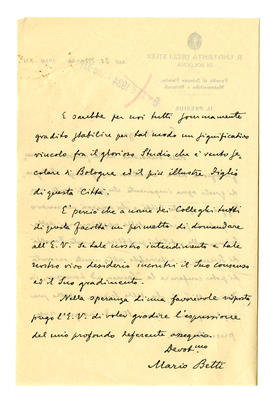 E sarebbe per noi tutti sommamente
gradito stabilire per tal modo un significativo
vincolo fra il glorioso Studio che è vanto se
colare di Bologna ed il più illustre Figlio
di questa Città.
E perciò che a nome dei Colleghi tutti
di questa Facoltà mi permetto di domandare
all'E.V. se tale nostro intendimento e tale
nostro vivo desiderio incontri il Suo consenso
ed il Suo gradimento.
Nella speranza di una favorevole risposta
prego l'E.V. di voler gradire l'espressione
del mio profondo deferente ossequio.
Devot.mo
Mario Betti